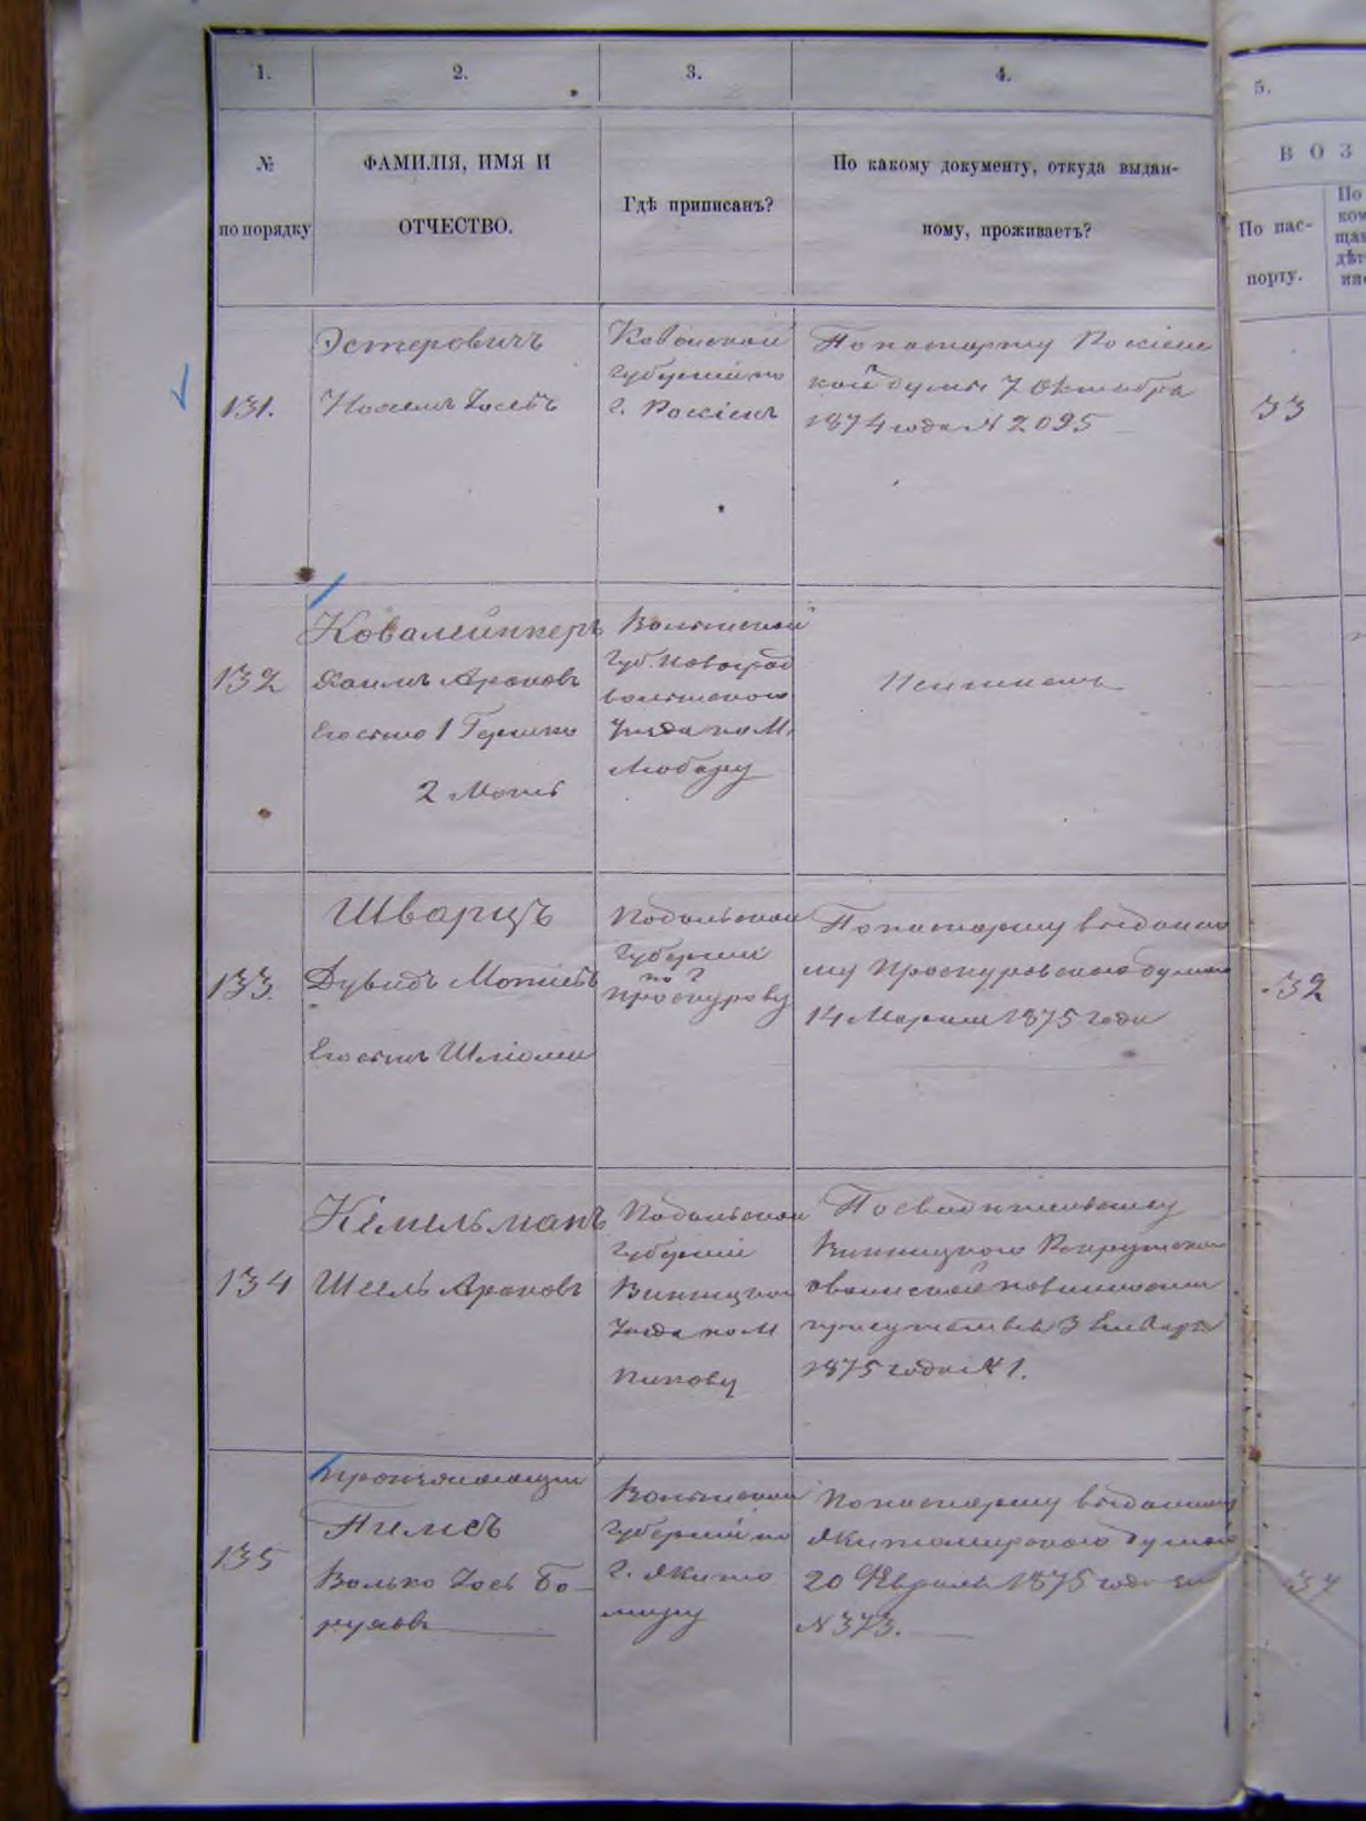 1.
2.
3.
4.
5.
№
по порядку
ФАМИЛІЯ, ИМЯ И
ОТЧЕСТВО.
Гдѣ приписанъ?
По какому документу, откуда выдан-
ному, проживаетъ?
ВОЗ
По пас-
порту.
131.
Эстеровичъ
Ковенской
Губерніи по
г. Россіенъ
По паспорту Россіен
ской думы 7 Октября
1874 года № 2095
33
132
Ковалейнперъ
Хаимъ Ароновъ
Его сыно 1 Гершко
2 Мотя
Волынской
Губ. Новоград
волынского
Уезда по М.
Любару
133
Шварцъ
Дувидъ
Его сынъ Шліома
Подольской
Губерніи
по г
Проскурову
По паспорту выданно
му Проскуровскою думою
14 Марта 1875 года
32
134
Кемельманъ
Шаель Ароновъ
Подольской
Губерніи
Винницкаго
Уезда по М
Пикову
По свидетельству
Винницкаго
о воинской повинности
присутствія 3 Января
1875 года № 1.
135
Проживающій
Пилсъ
Волько Іось Бо-
руховъ
Волынской
Губерніи по
г. Жито
миру
По паспорту выданному
Житомирскою думою
20 Февраля 1875 года за
№ 373.
37